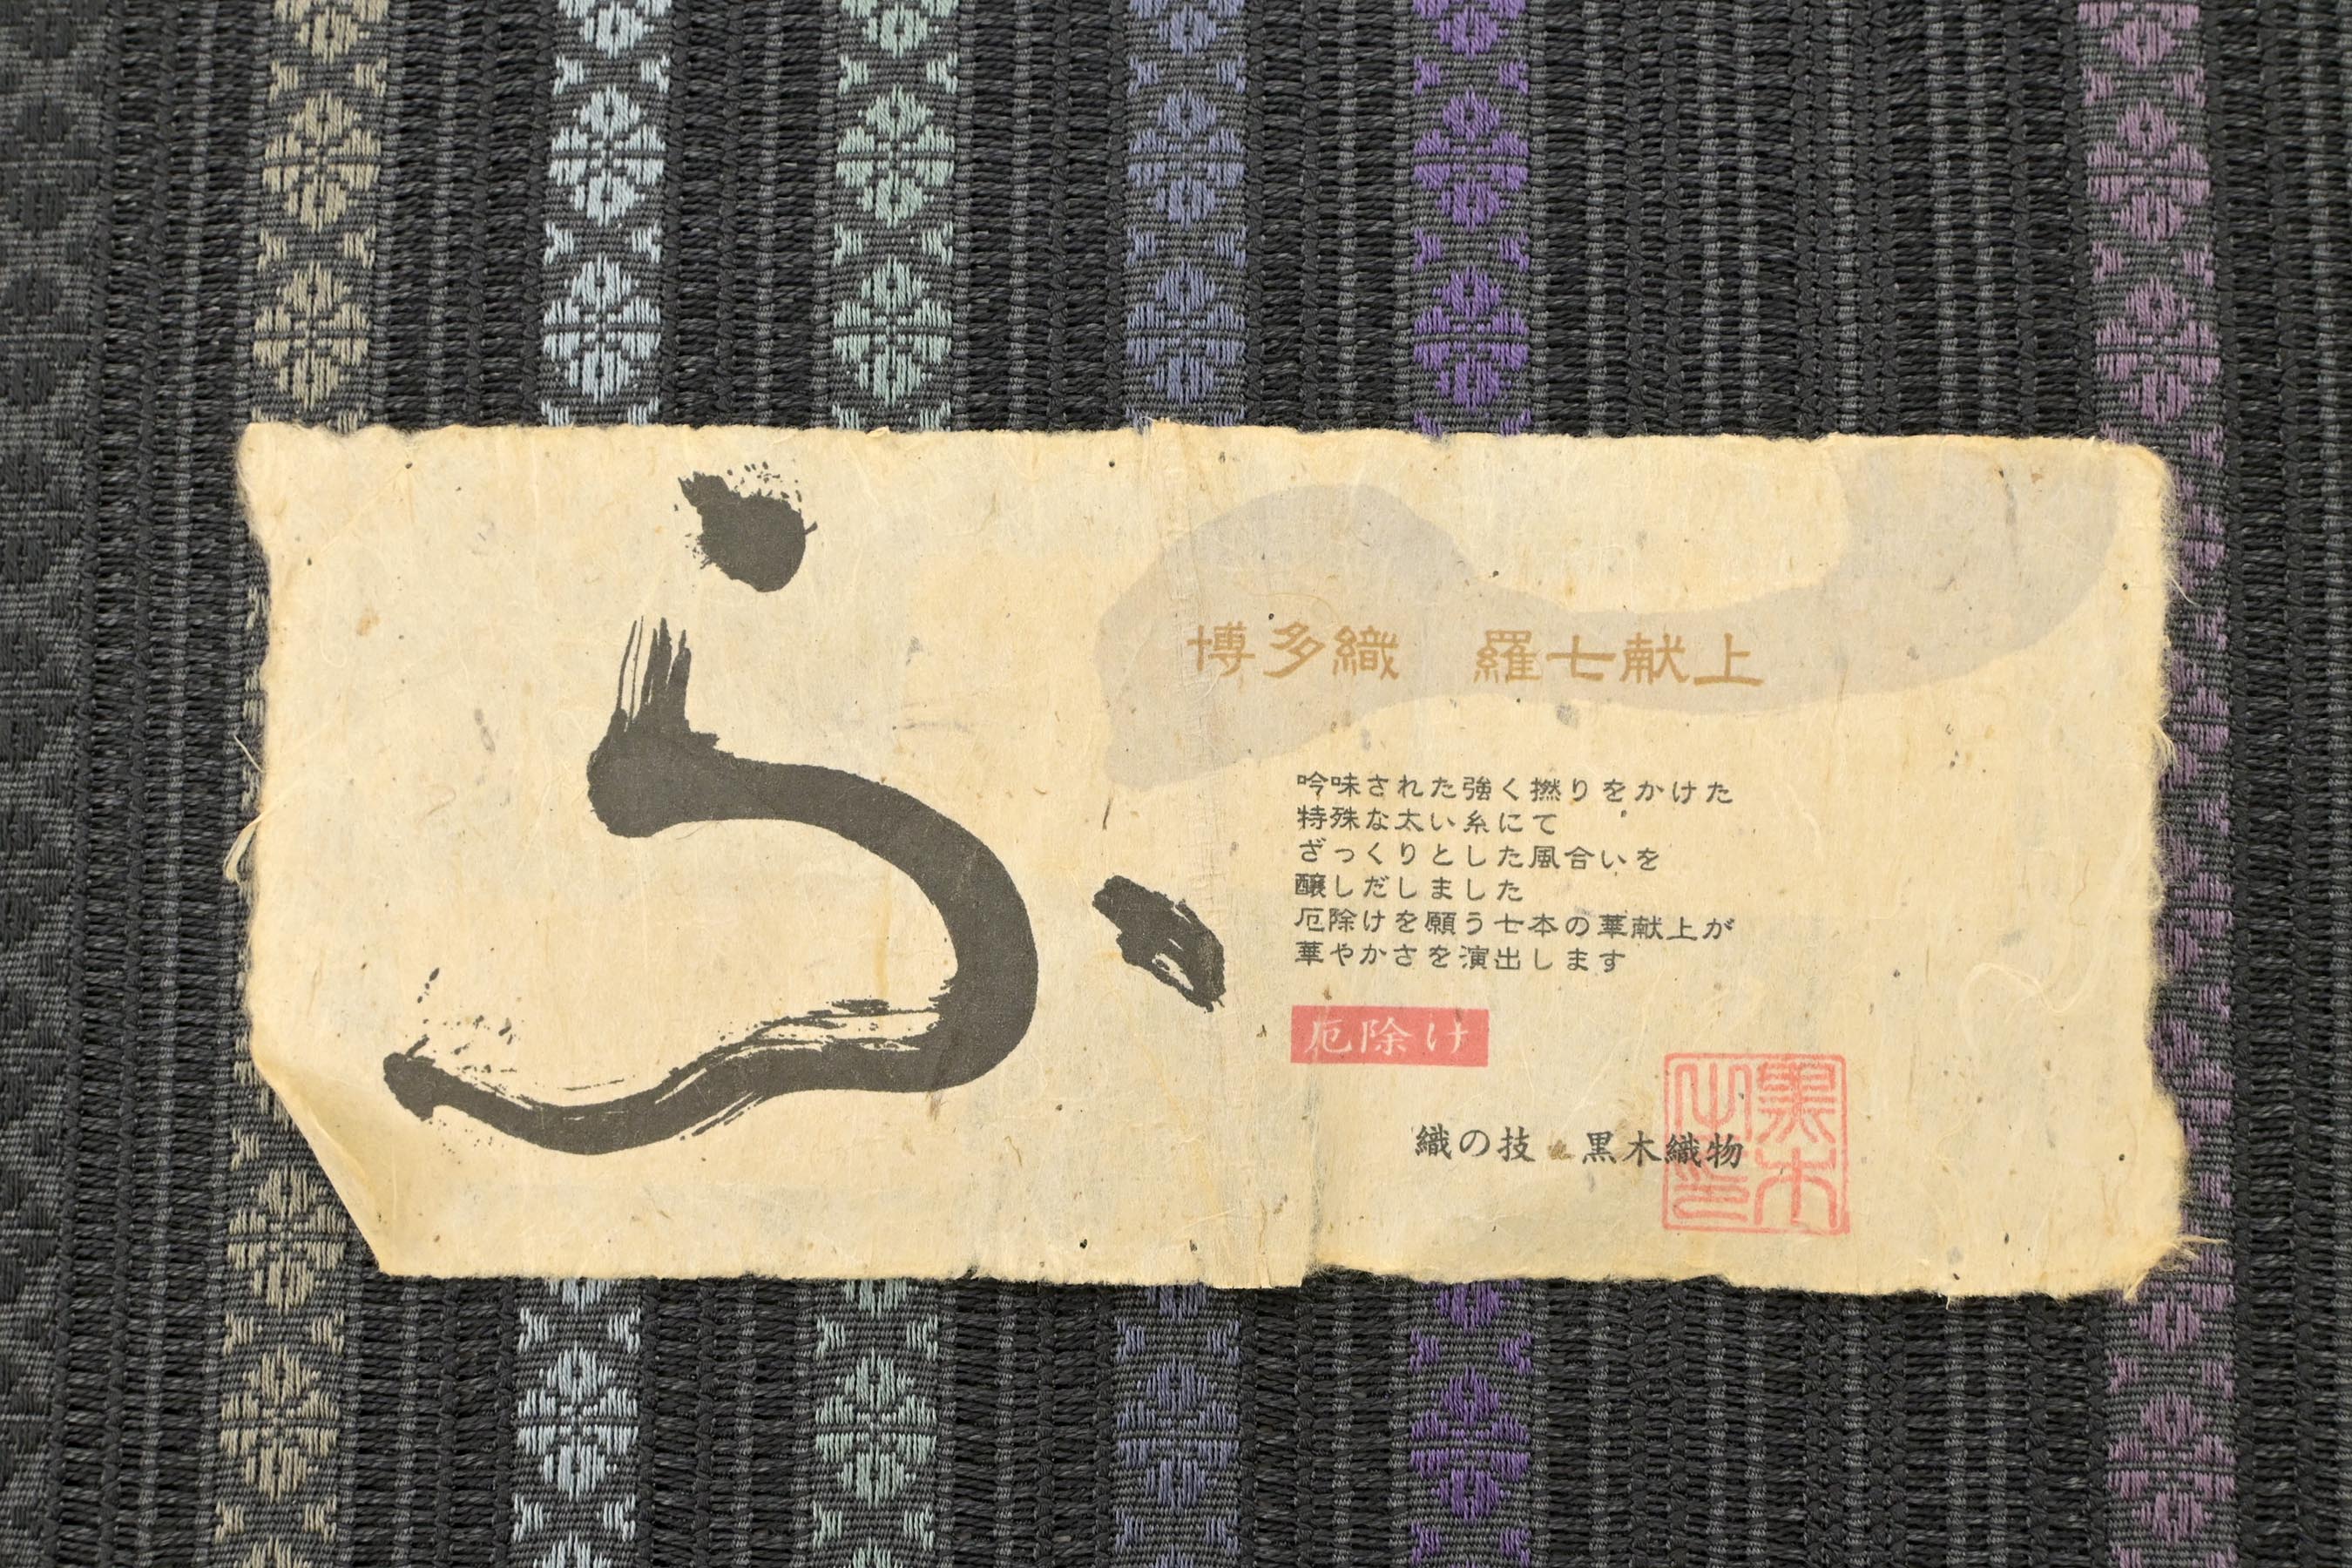 博多織　羅七献上
吟味された強く撚りをかけた
特殊な太い糸にて
ざっくりとした風合いを
醸しだしました
厄除けを願う七本の華献上が
華やかさを演出します
厄除け
織の技　黒木織物